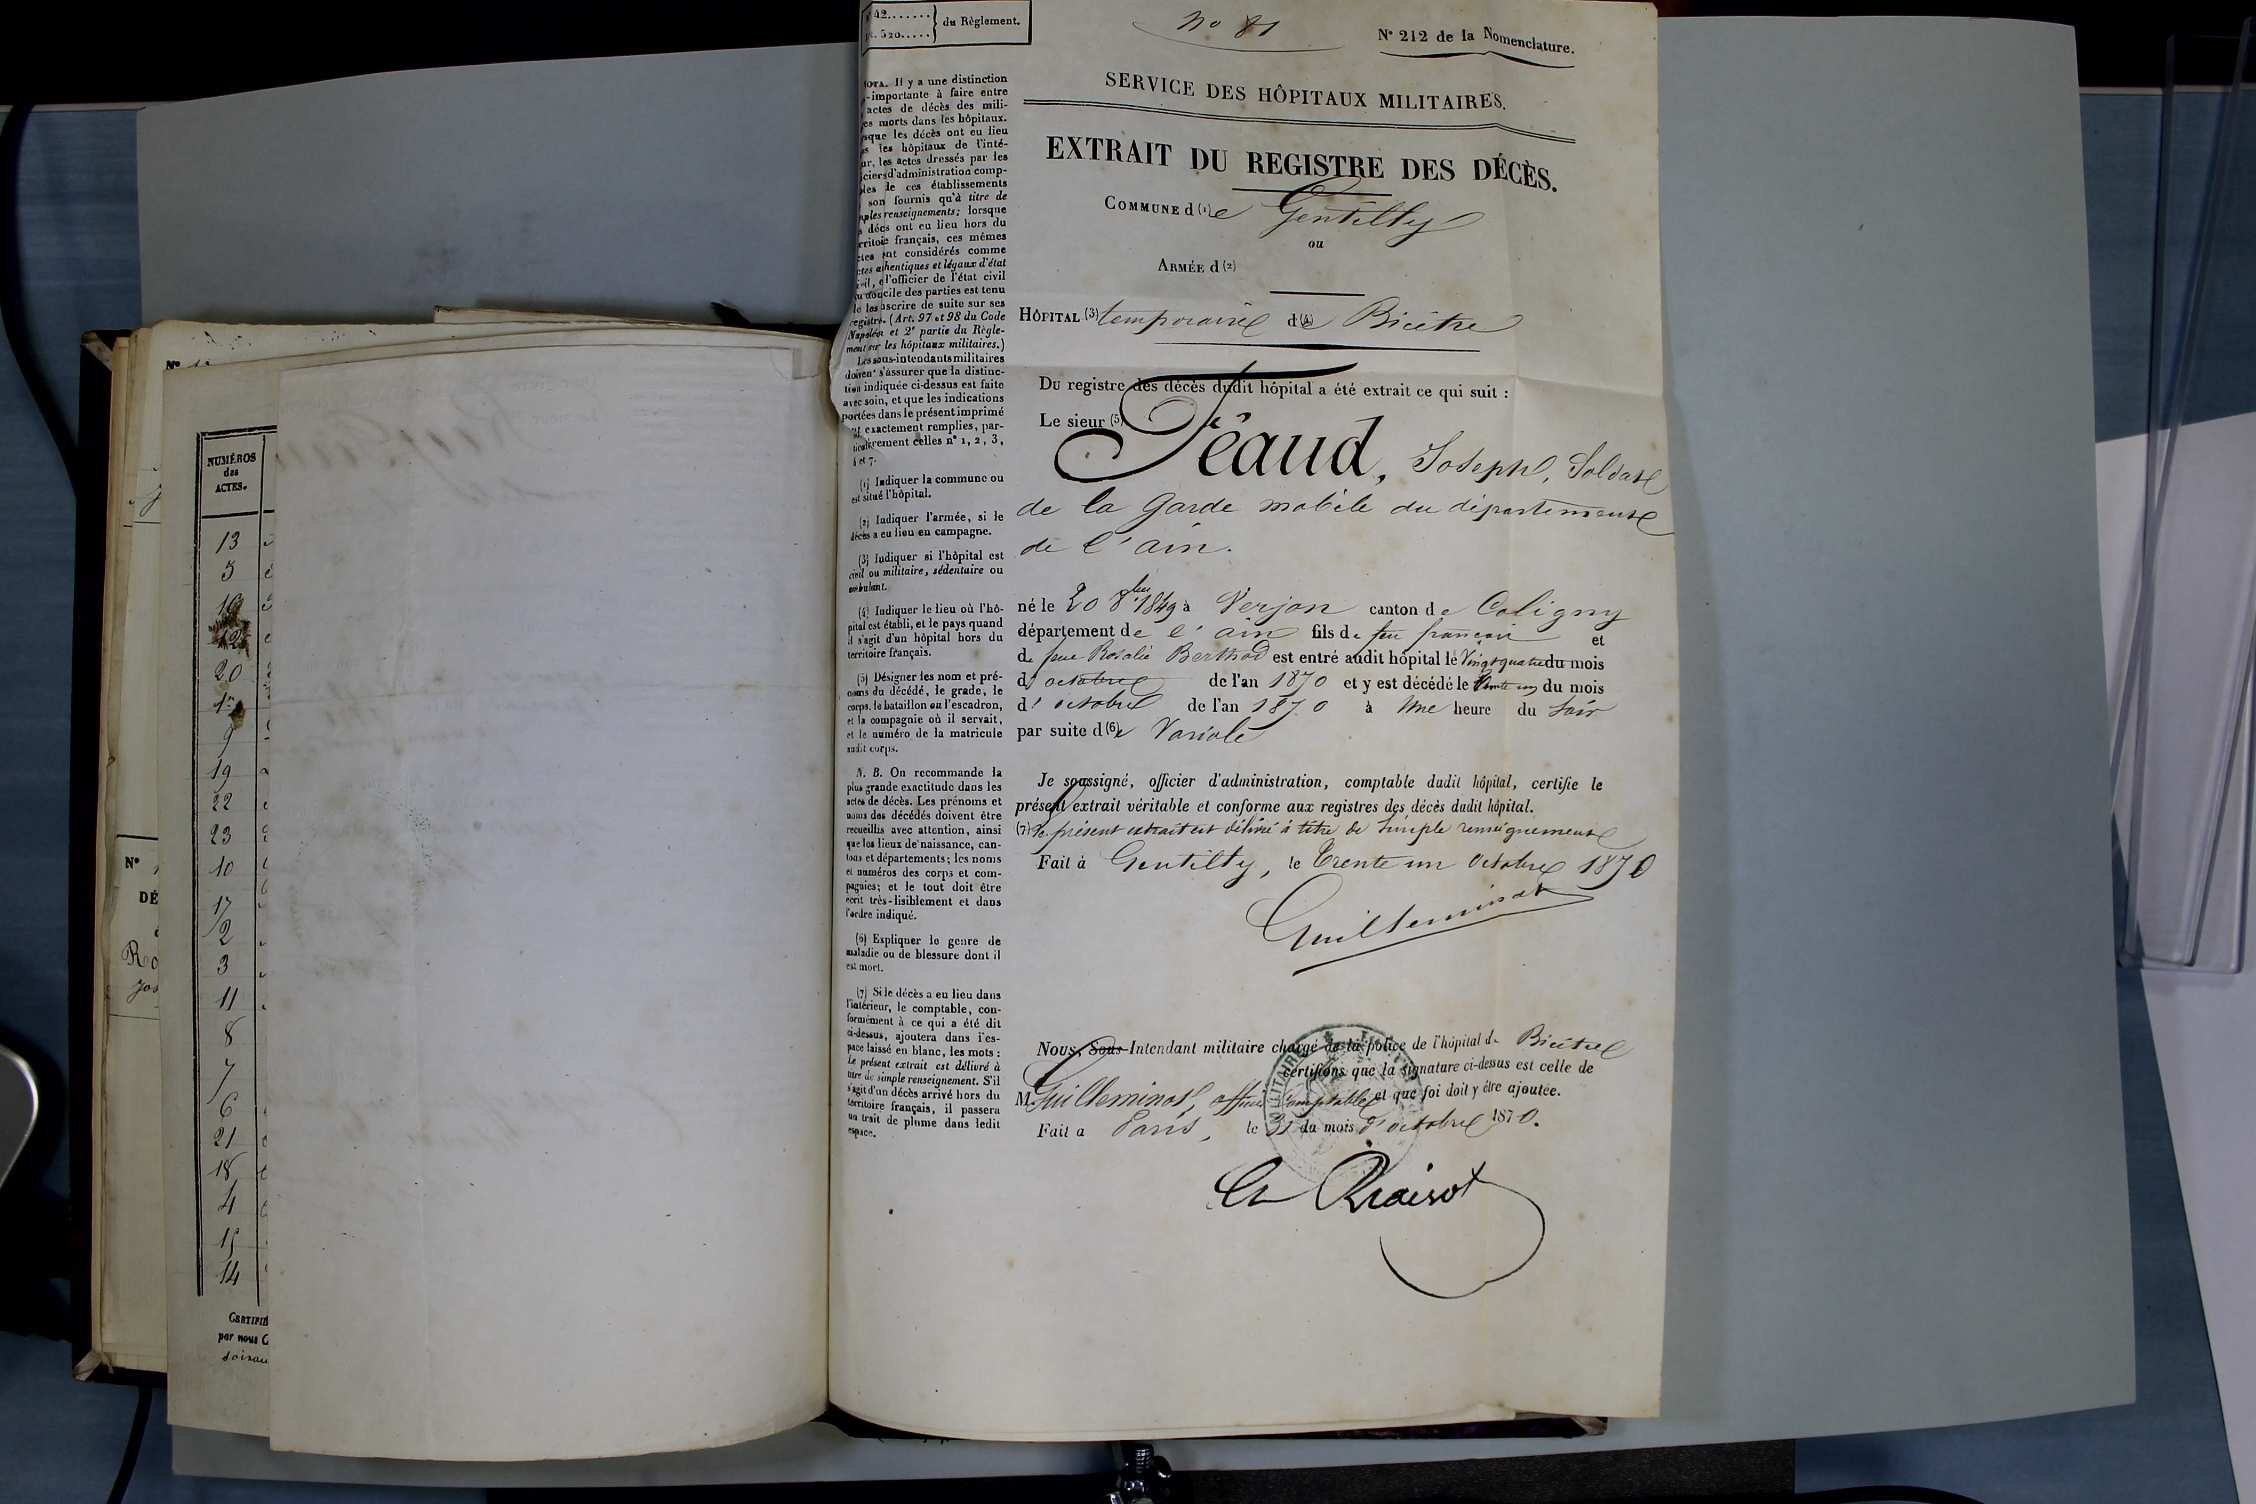 42....... du Règlement.
520.....
No 81
N° 212 de la Nomenclature.
SERVICE DES HÔPITAUX MILITAIRES.
EXTRAIT DU REGISTRE DES DÉCÈS.
COMMUNE d (1) e Gentilly
ou
ARMÉE d (2)
HÔPITAL (3) temporaire d (4) e Bicêtre
Du registre des décès dudit hôpital a été extrait ce qui suit :
Le sieur (5)
Féaud, Joseph, Soldat
de la Garde mobile du département
de l'ain.
né le 20 8bre 1849 à Verjon canton de Coligny
département de l'ain fils de feu françois et
de feue Rosalie Berthod est entré audit hôpital le Vingt quatre du mois
d'octobre de l'an 1870 et y est décédé le trente un du mois
d'octobre de l'an 1870 à Une heure du soir
par suite d (6) e Variole
Je soussigné, officier d'administration, comptable dudit hôpital, certifie le
présent extrait véritable et conforme aux registres des décès dudit hôpital.
(7) Le présent extrait est délivré à titre de simple renseignement
Fait à Gentilly, le Trente un Octobre 1870
Guilleminot
Nous, Sous-Intendant militaire chargé de la police de l'hôpital de Bicêtre
certifions que la signature ci-dessus est celle de
M. Guilleminot, officier Comptable et que foi doit y être ajoutée.
Fait à Paris, le 31 du mois d'octobre 1870.
MILITAIRE
NOTA. Il y a une distinction
-importante à faire entre
actes de décès des mili-
es morts dans les hôpitaux.
sque les décès ont eu lieu
les hôpitaux de l'inté-
ur, les actes dressés par les
ciers d'administration comp-
les de ces établissements
son fournis qu'à titre de
ples renseignements; lorsque
décs ont eu lieu hors du
rritoie français, ces mêmes
ctes nt considérés comme
ctes ahentiques et légaux d'état
ivil, l'officier de l'état civil
u doucile des parties est tenu
le les nscrire de suite sur ses
registre. (Art. 97 et 98 du Code
Napoléon et 2e partie du Règle-
ment sur les hôpitaux militaires.)
Les sous-intendants militaires
doivent s'assurer que la distinc-
tion indiquée ci-dessus est faite
avec soin, et que les indications
portées dans le présent imprimé
exactement remplies, par-
ticulièrement celles n° 1, 2, 3,
4 et 7.
(1) Indiquer la commune ou
est situé l'hôpital.
(2) Indiquer l'armée, si le
décès a eu lieu en campagne.
(3) Indiquer si l'hôpital est
civil ou militaire, sédentaire ou
ambulant.
(4) Indiquer le lieu où l'hô-
pital est établi, et le pays quand
il s'agit d'un hôpital hors du
territoire français.
(5) Désigner les nom et pré-
noms du décédé, le grade, le
corps, le bataillon ou l'escadron,
et la compagnie où il servait,
et le numéro de la matricule
audit corps.
N. B. On recommande la
plus grande exactitude dans les
actes de décès. Les prénoms et
noms des décédés doivent être
recueillis avec attention, ainsi
que les lieux de naissance, can-
tons et départements; les noms
et numéros des corps et com-
pagnies; et le tout doit être
écrit très-lisiblement et dans
l'ordre indiqué.
(6) Expliquer le genre de
maladie ou de blessure dont il
est mort.
(7) Si le décès a eu lieu dans
l'intérieur, le comptable, con-
formément à ce qui a été dit
ci-dessus, ajoutera dans l'es-
pace laissé en blanc, les mots :
Le présent extrait est délivré à
titre de simple renseignement. S'il
s'agit d'un décès arrivé hors du
territoire français, il passera
un trait de plume dans ledit
espace.
N°
NUMÉROS
des
ACTES.
13
5
16
12
20
1er
9
19
22
23
10
17
2
3
11
8
7
6
21
18
4
15
14
CERTIFIÉ
par nous
N°
DÉ